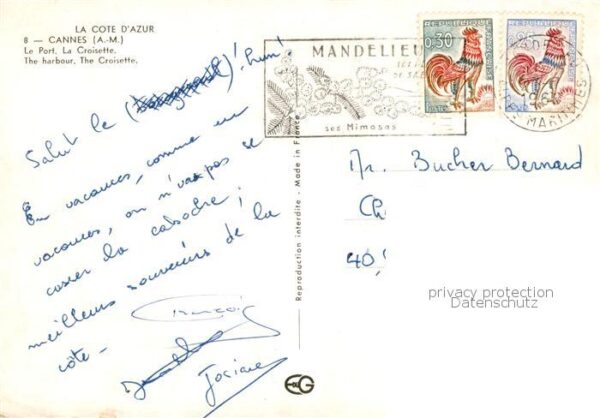 LA COTE D'AZUR
8 — CANNES (A.-M.)
Le Port. La Croisette.
The harbour. The Croisette.
Salut le ( )! hum!
En vacances, comme en
vacances, on n'va pas se
casser la caboche;
meilleurs souvenirs de la
côte -
Josiane
Reproduction interdite - Made in France
EG
MANDELIEU
ses Mimosas
0,30
MARITIMES
Mr. Bucher Bernard
Ch
40
privacy protection
Datenschutz